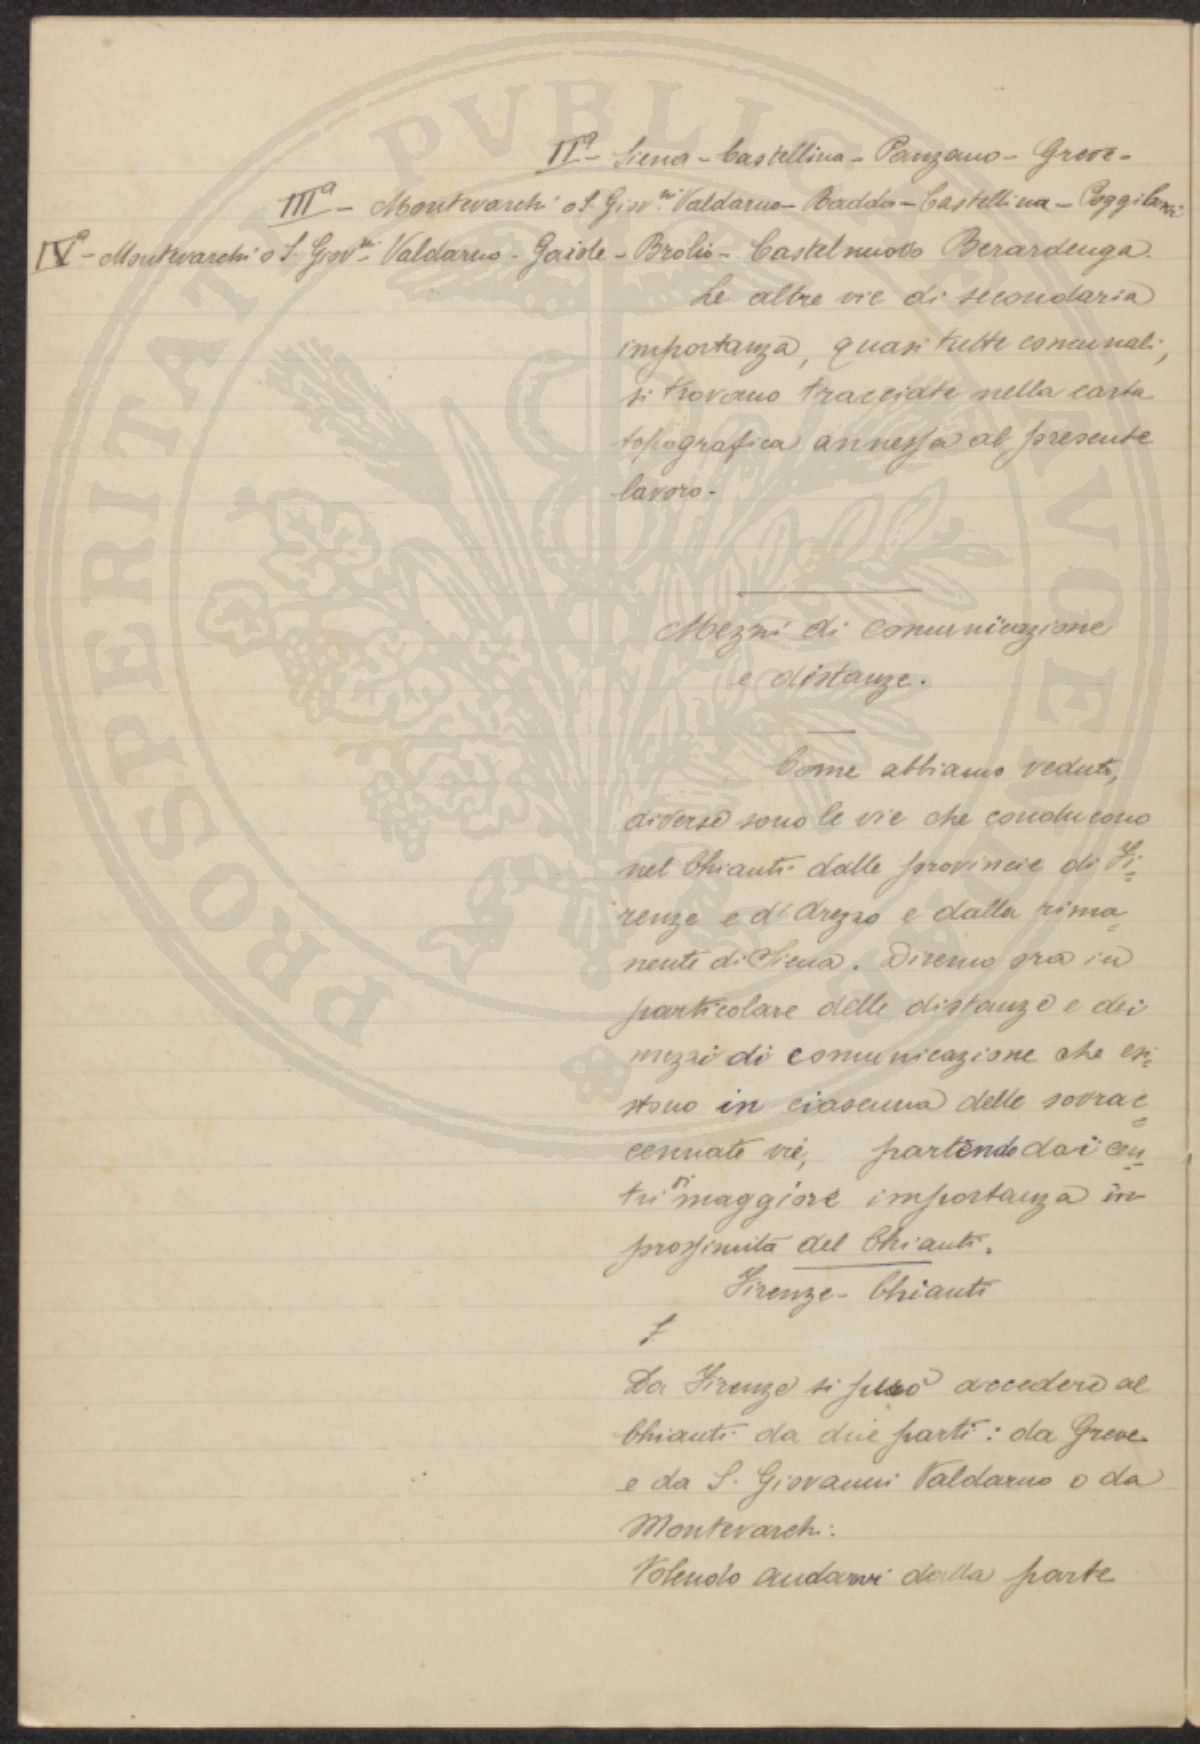 IIª - Siena - Castellina - Panzano - Greve -
IIIª - Montevarchi o S. Giov.ni Valdarno - Radda - Castellina - Poggibonsi
IVª - Montevarchi o S. Giov.ni Valdarno - Gaiole - Brolio - Castelnuovo Berardenga.
Le altre vie di secondaria
importanza, quasi tutte comunali,
si trovano tracciate nella carta
topografica annessa al presente
lavoro -
Mezzi di comunicazione
e distanze.
Come abbiamo veduto,
diverse sono le vie che conducono
nel Chianti dalle provincie di Fi=
renze e di Arezzo e dalla rima=
nente di Siena. Diremo ora in
particolare delle distanze e dei
mezzi di comunicazione che esi=
stono in ciascuna delle sovrac=
cennate vie, partendo dai cen=
tri di maggiore importanza in
prossimità del Chianti.
Firenze - Chianti
I
Da Firenze si può accedere al
Chianti da due parti: da Greve
e da S. Giovanni Valdarno o da
Montevarchi:
Volendo andarvi dalla parte
PROSPERITATI PVBLICAE AVGENDAE